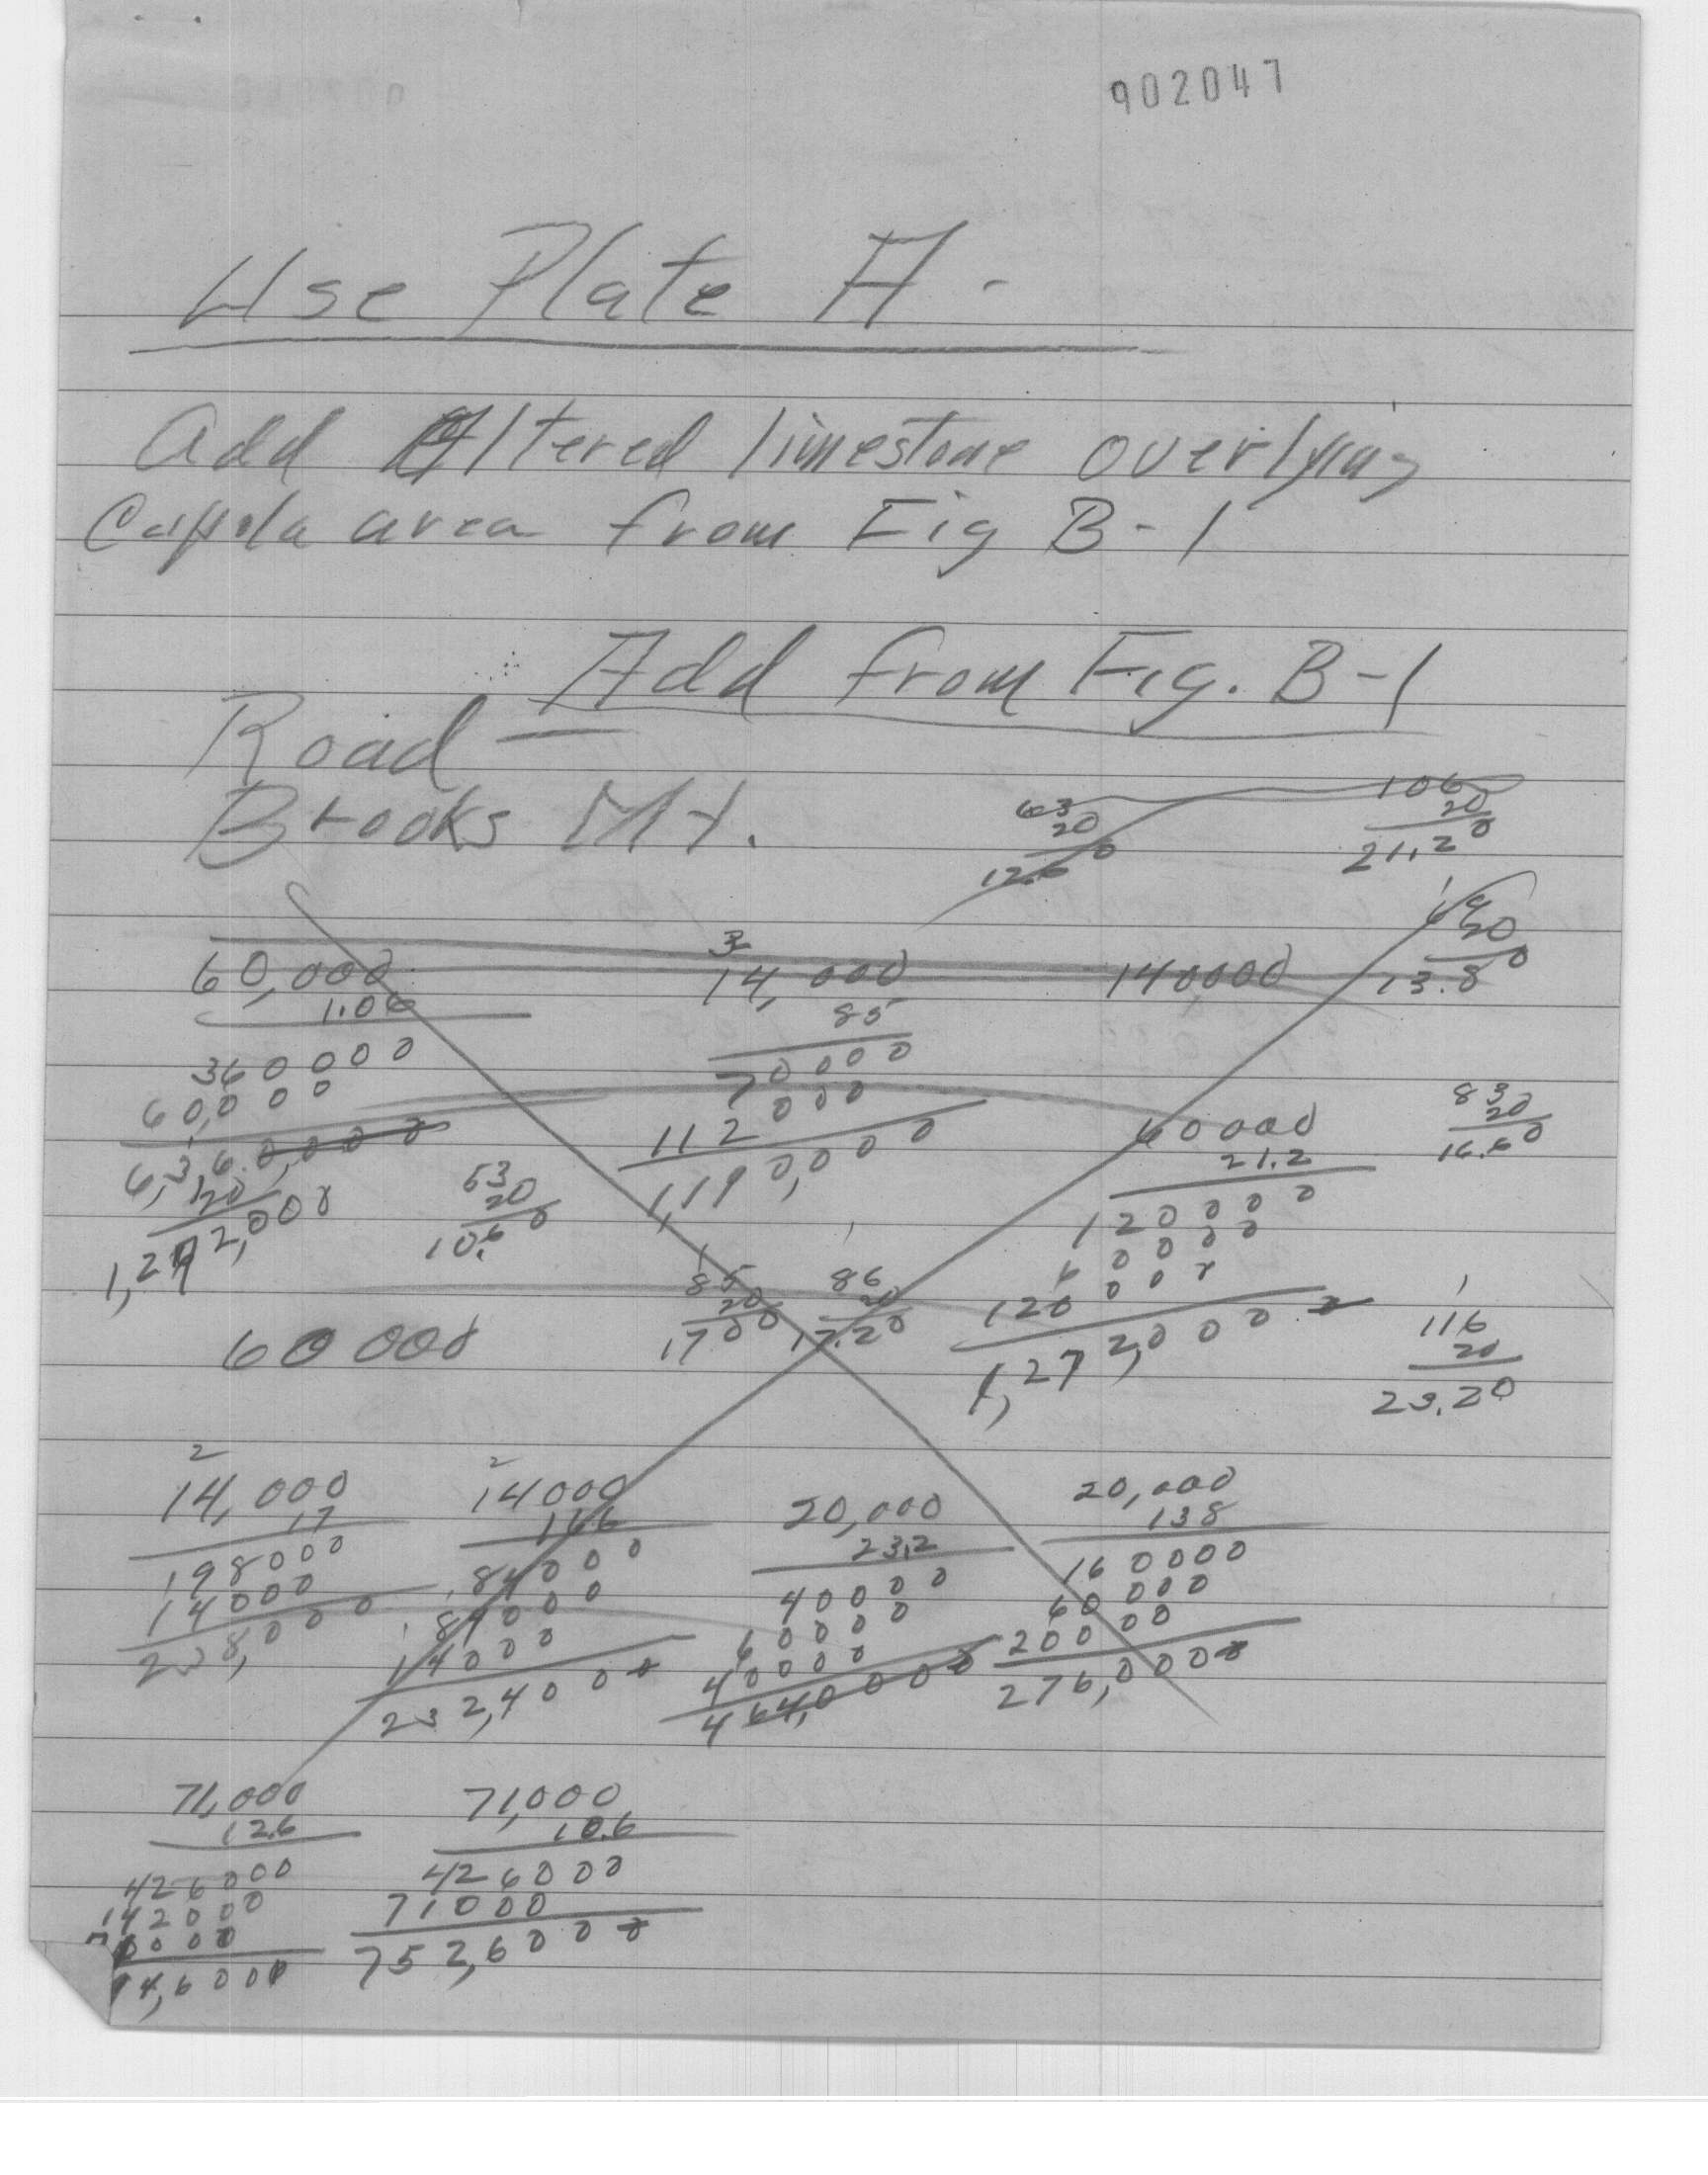 902047
Use Plate A -
Add Altered limestone overlying
Cupola area from Fig B-1
Add from Fig. B-1
Road —
Brooks Mt.
63
20
12.60
106
20
21.20
69
20
13.80
60,000
1.06
360000
60,000
6,3,6.0,000
20
2,000
3
14,000
85
70000
112000
1,190,000
140000
53
20
10.60
60000
21.2
120000
60000
120000
1,272,000.0
83
20
16.60
85
20
1700
86
20
17.20
60000
116
20
23.20
2
14,000
17
198000
14000
238,000
2
14000
166
84000
84000
14000
232,4000
20,000
23.2
40000
60000
40000
464,0000
20,000
138
160000
60000
20000
276,0000
71,000
12.6
426000
142000
71,000
10.6
426000
71000
752,6000